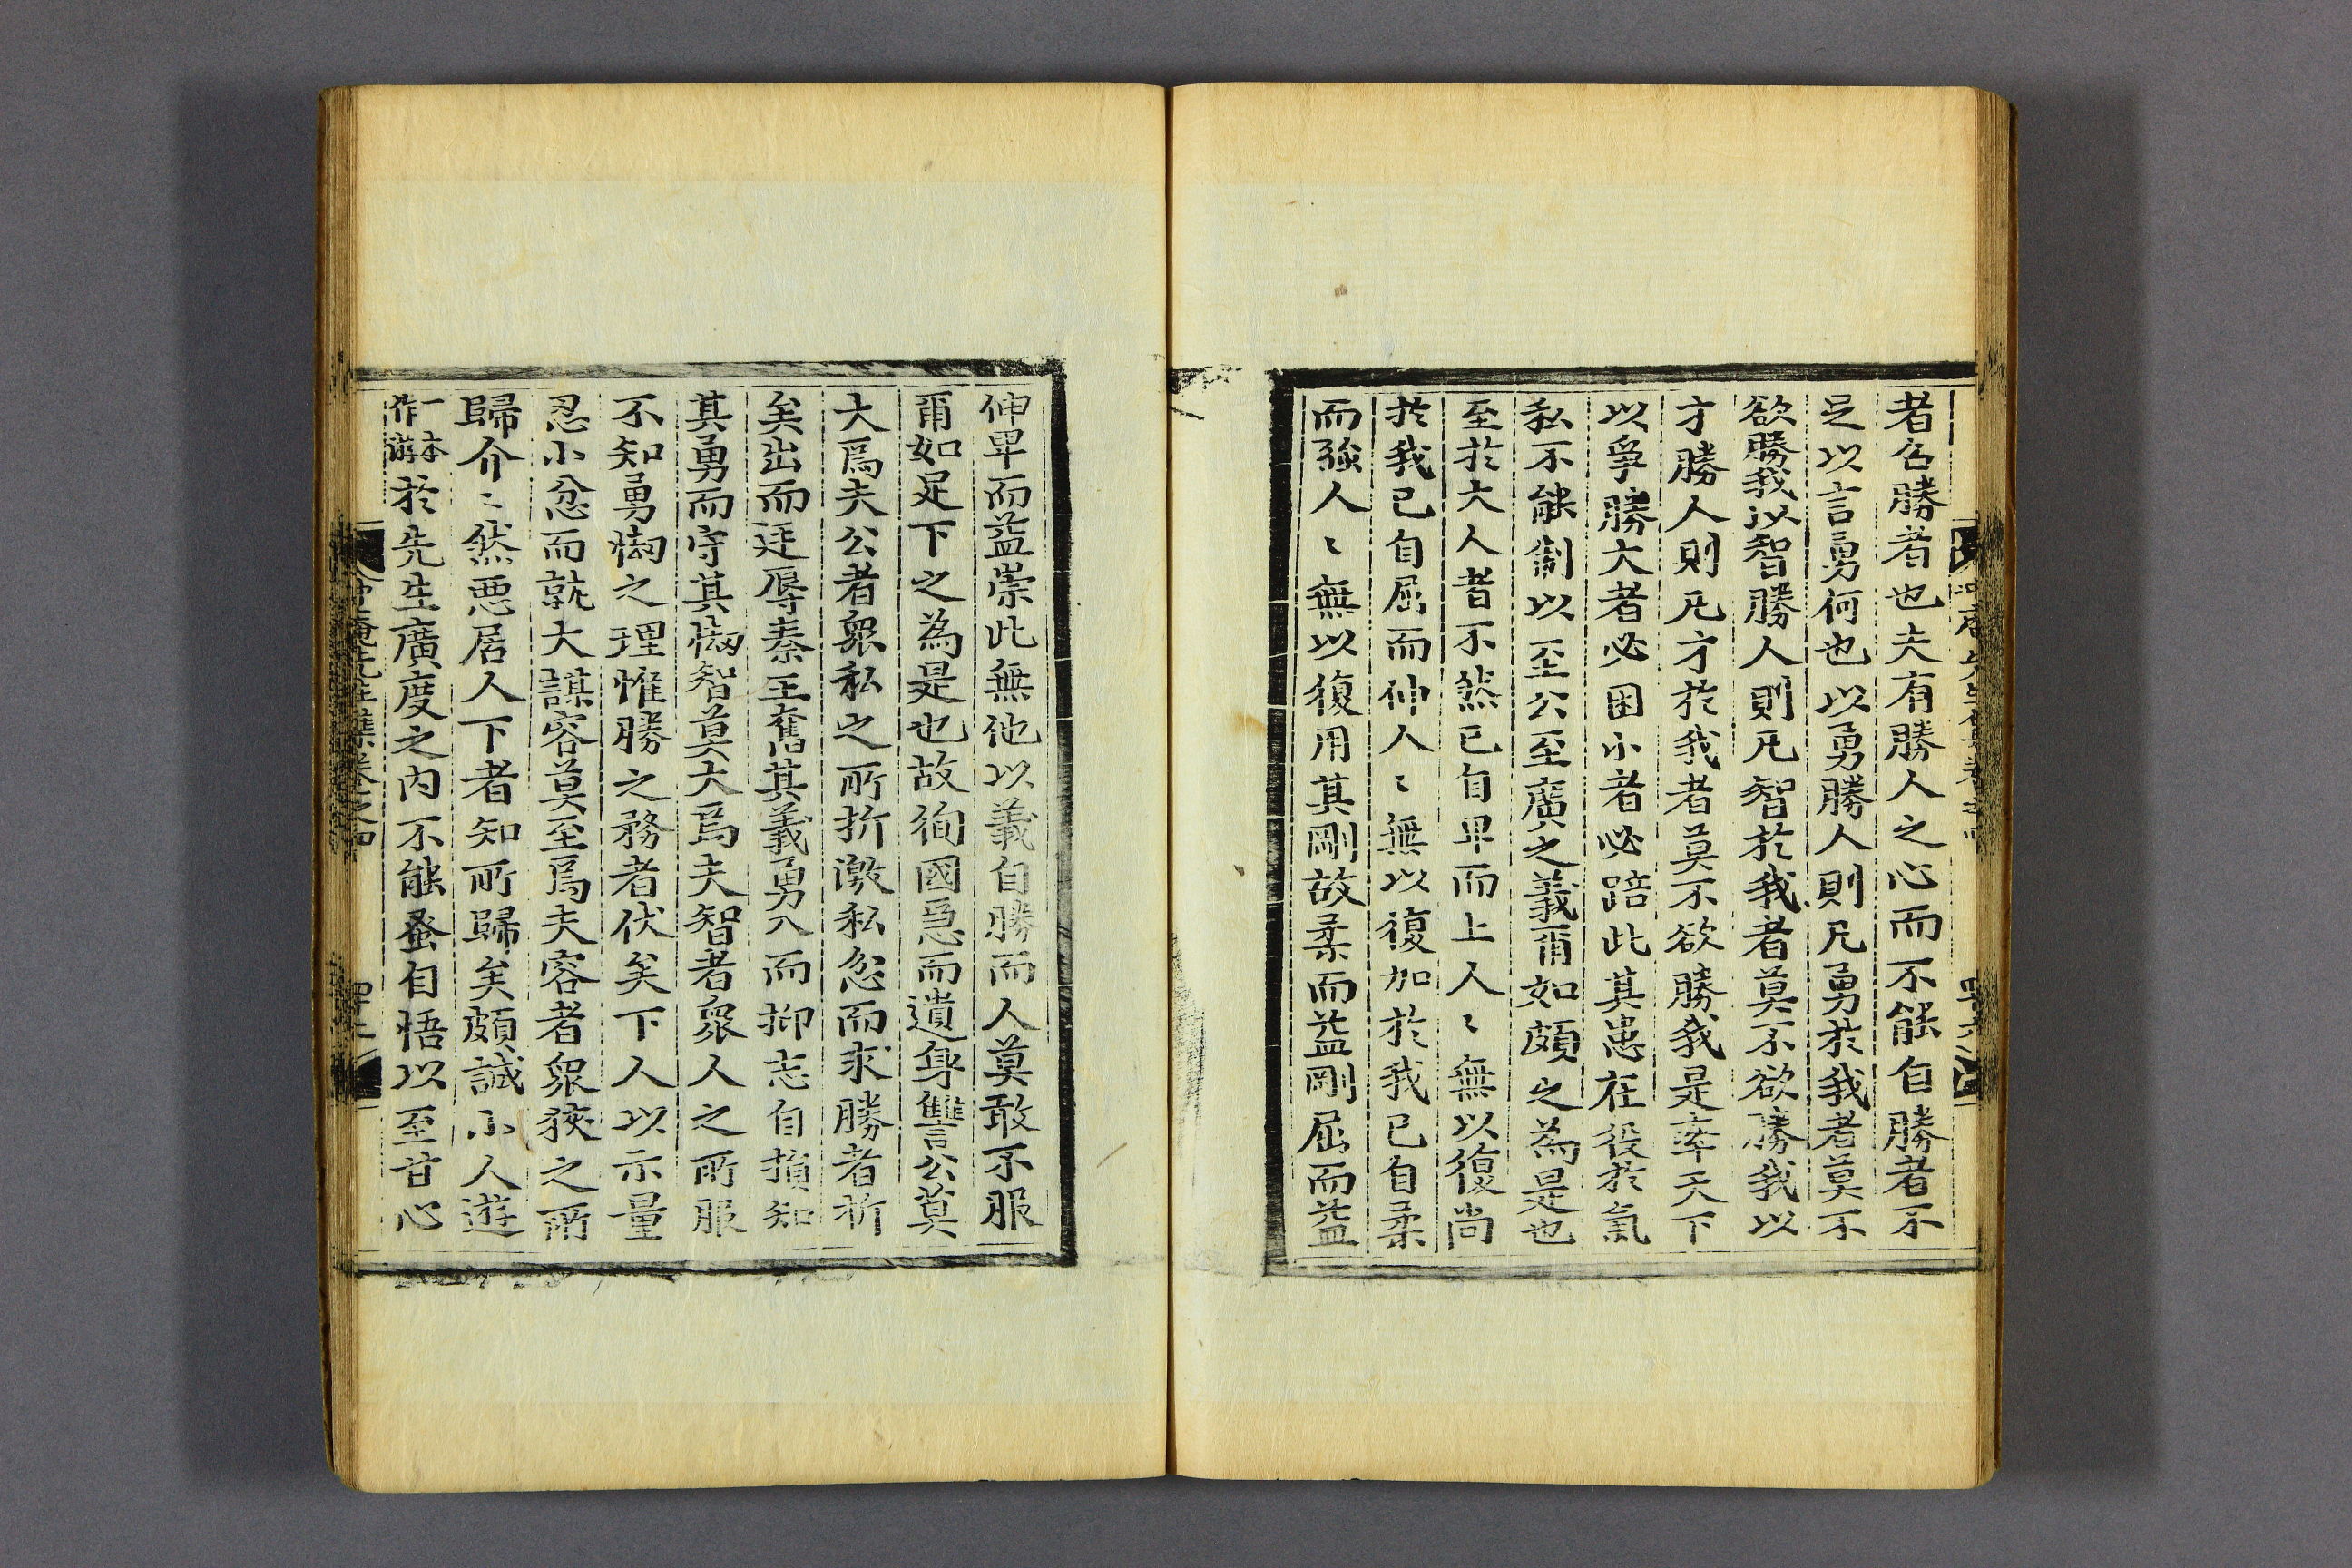 者名勝者也夫有勝人之心而不能自勝者不
足以言勇何也以勇勝人則凡勇於我者莫不
欲勝我以智勝人則凡智於我者莫不欲勝我以
才勝人則凡才於我者莫不欲勝我是率天下
以爭勝大者必困小者必踣此其患在役於氣
私不能制以至公至廣之義爾如頗之為是也
至於大人者不然已自卑而上人〻無以復尚
於我已自屈而伸人〻無以復加於我已自柔
而強人〻無以復用其剛故柔而益剛屈而益
伸卑而益崇此無他以義自勝而人莫敢不服
爾如足下之為是也故徇國急而遺身讐公莫
大焉夫公者衆私之所折激私忿而求勝者折
矣出而廷辱秦王奮其義勇入而抑志自損知
其勇而守其㤼智莫大焉夫智者衆人之所服
不知勇㤼之理惟勝之務者伏矣下人以示量
忍小忿而就大謀容莫至焉夫容者衆狹之所
歸介〻然惡居人下者知所歸矣頗誠小人遊
一本
作游
於先生廣度之内不能蚤自悟以至甘心
先生集卷之四